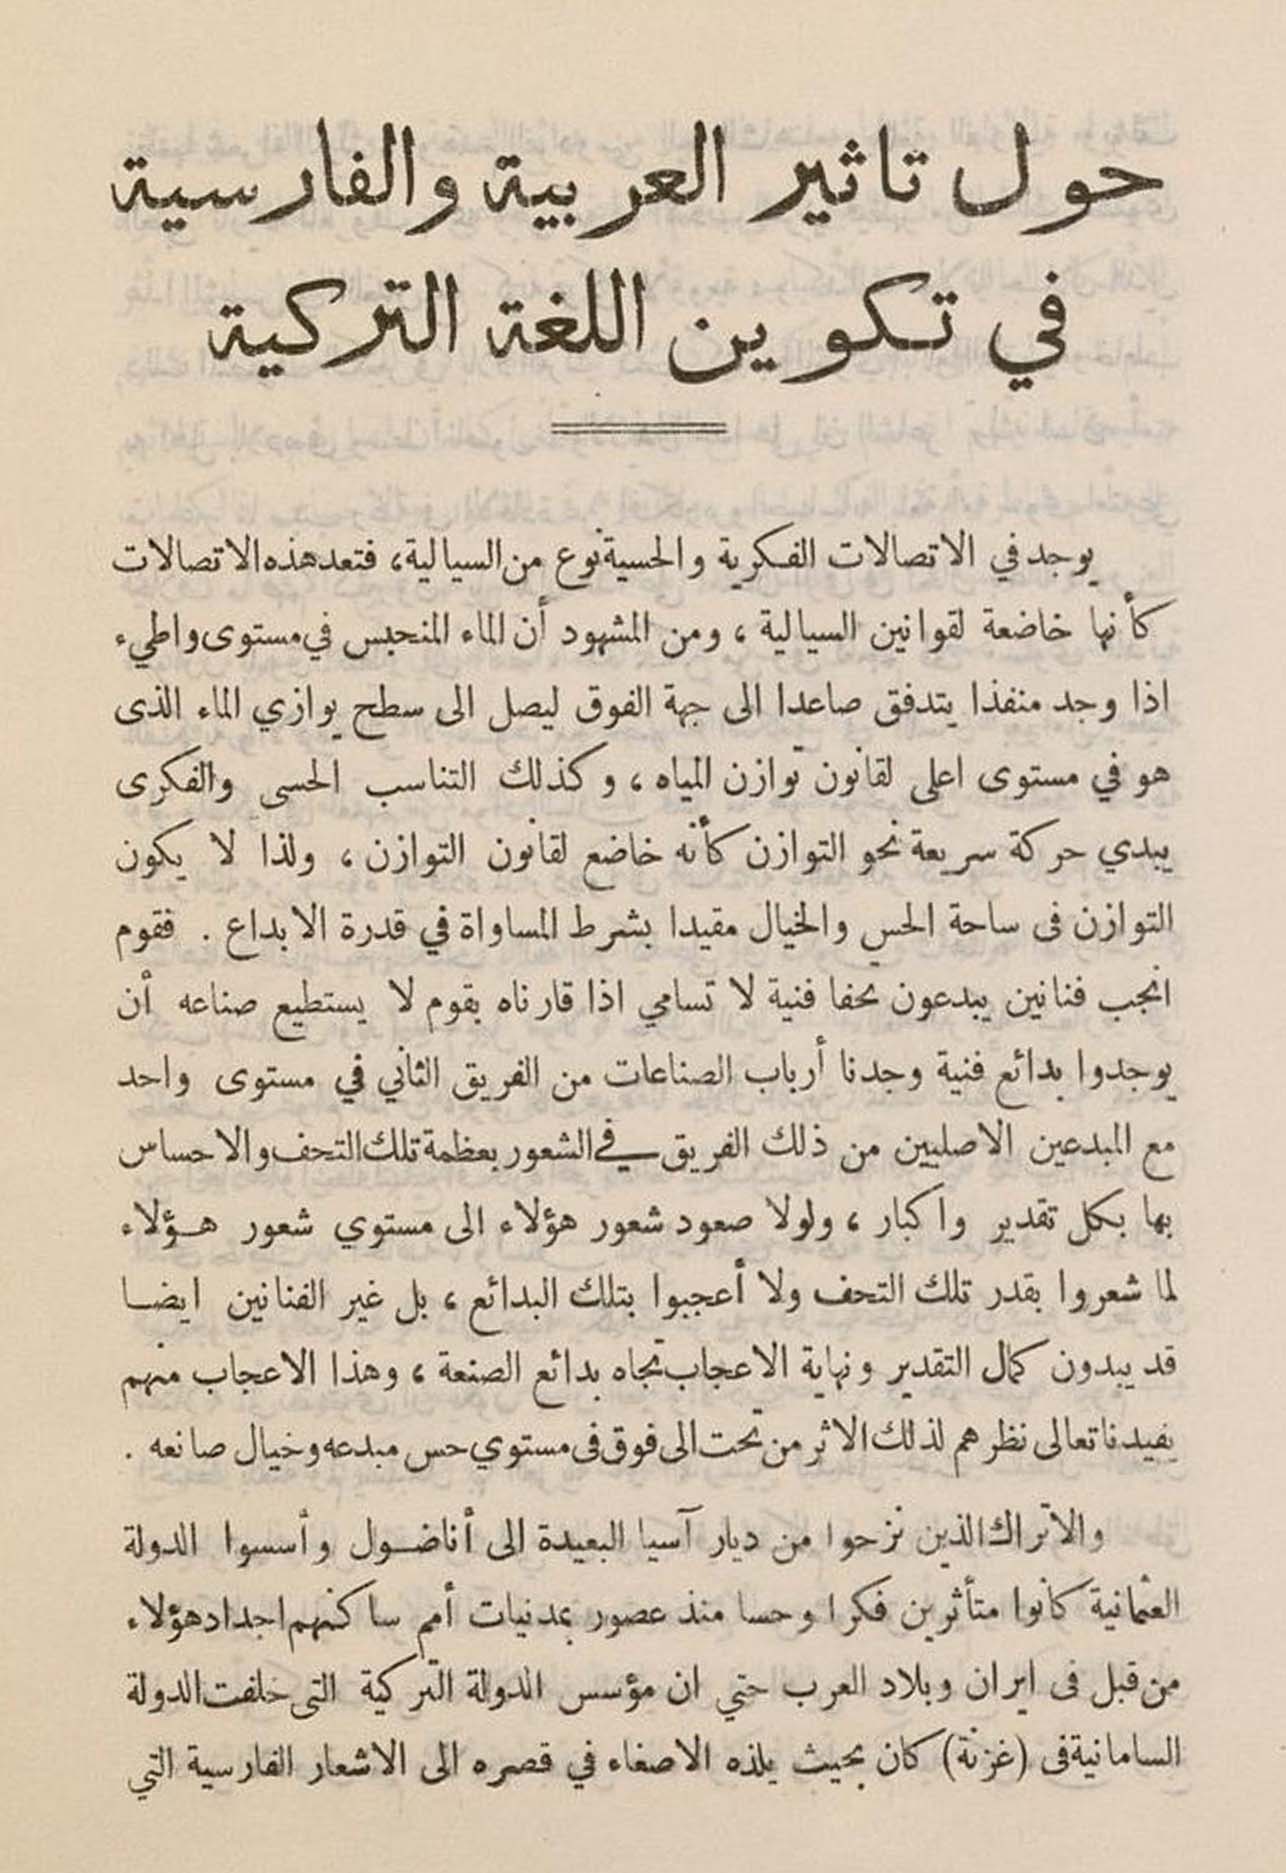 حول تاثير العربية والفارسية
في تكوين اللغة التركية
يوجد في الاتصالات الفكرية والحسية نوع من السيالية، فتعد هذه الاتصالات
كأنها خاضعة لقوانين السيالية ، ومن المشهود أن الماء المنحبس في مستوى واطيء
اذا وجد منفذا يتدفق صاعدا الى جهة الفوق ليصل الى سطح يوازي الماء الذى
هو في مستوى اعلى لقانون توازن المياه ، وكذلك التناسب الحسى والفكرى
يبدي حركة سريعة نحو التوازن كأنه خاضع لقانون التوازن ، ولذا لا يكون
التوازن فى ساحة الحس والخيال مقيدا بشرط المساواة في قدرة الابداع . فقوم
انجب فنانين يبدعون تحفا فنية لا تسامي اذا قارناه بقوم لا يستطيع صناعه أن
يوجدوا بدائع فنية وجدنا أرباب الصناعات من الفريق الثاني في مستوى واحد
مع المبدعين الاصليين من ذلك الفريق في الشعور بعظمة تلك التحف والاحساس
بها بكل تقدير واكبار ، ولولا صعود شعور هؤلاء الى مستوي شعور هؤلاء
لما شعروا بقدر تلك التحف ولا أعجبوا بتلك البدائع ، بل غير الفنانين ايضا
قد يبدون كمال التقدير ونهاية الاعجاب تجاه بدائع الصنعة ، وهذا الاعجاب منهم
يفيدنا تعالى نظرهم لذلك الاثر من تحت الى فوق فى مستوي حس مبدعه وخيال صانعه .
والاتراك الذين نزحوا من ديار آسيا البعيدة الى أناضول وأسسوا الدولة
العثمانية كانوا متأثرين فكرا وحسا منذ عصور بمدنيات أمم ساكنهم اجداد هؤلاء
من قبل فى ايران وبلاد العرب حتي ان مؤسس الدولة التركية التى خلفت الدولة
السامانية فى (غزنة) كان بحيث يلذه الاصغاء في قصره الى الاشعار الفارسية التي